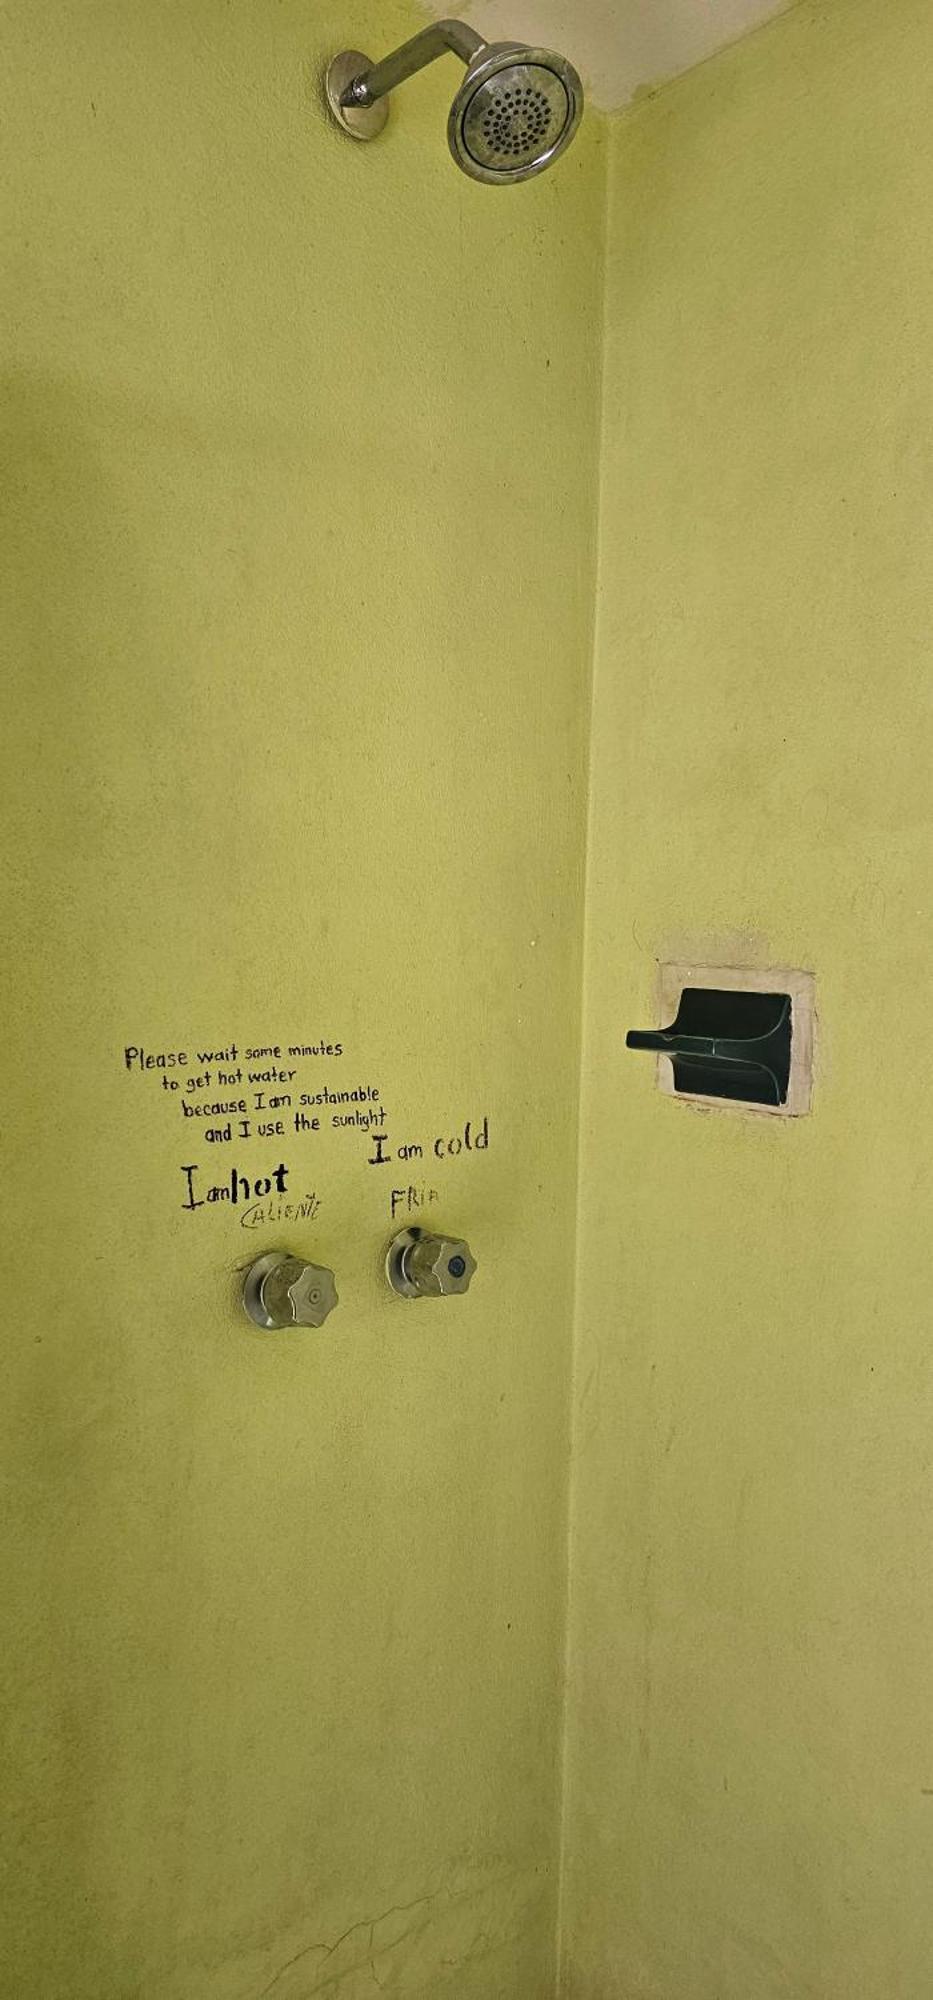 Please wait some minutes
to get hot water
because I am sustainable
and I use the sunlight
I am hot
CALIENTE
I am cold
FRIA